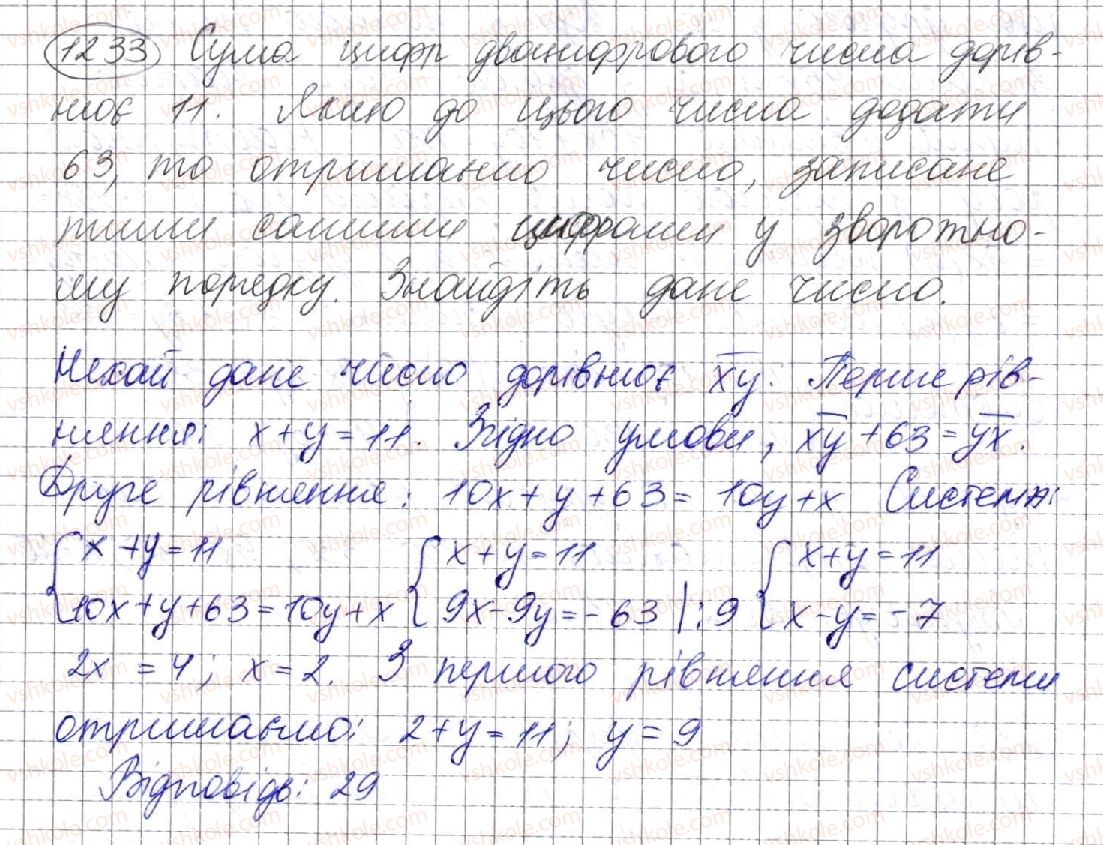 1233 Сума цифр двоцифрового числа дорів-
нює 11. Якщо до цього числа додати
63, то отримаємо число, записане
тими самими цифрами у зворотно-
му порядку. Знайдіть дане число.
Нехай дане число дорівнює x̅y̅. Перше рів-
няння: x+y=11. Згідно умови, x̅y̅+63=y̅x̅.
Друге рівняння: 10x+y+63=10y+x Система:
{x+y=11 {x+y=11 {x+y=11
10x+y+63=10y+x 9x-9y=-63 |:9 x-y=-7
2x=4; x=2. З першого рівняння системи
отримаємо: 2+y=11; y=9
Відповідь: 29